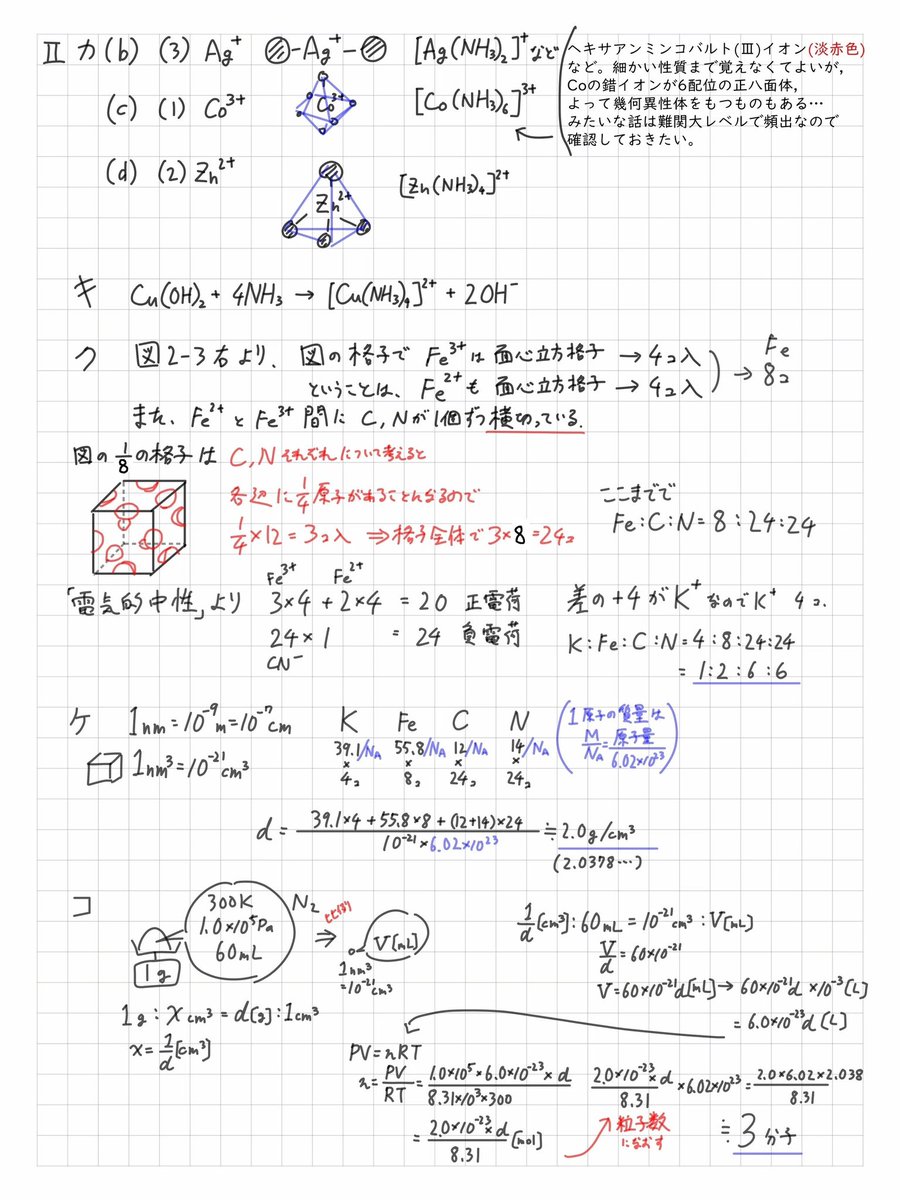 II カ (b) (3) Ag⁺ -Ag⁺- [Ag(NH₃)₂]⁺など
ヘキサアンミンコバルト(Ⅲ)イオン(淡赤色)
など。細かい性質まで覚えなくてよいが,
Coの錯イオンが6配位の正八面体,
よって幾何異性体をもつものもある…
みたいな話は難関大レベルで頻出なので
確認しておきたい。
(c) (1) Co³⁺ Co³⁺ [Co(NH₃)₆]³⁺
(d) (2) Zn²⁺ Zn²⁺ [Zn(NH₃)₄]²⁺
キ Cu(OH)₂ + 4NH₃ → [Cu(NH₃)₄]²⁺ + 2OH⁻
ク 図2-3右より、図の格子で Fe³⁺は面心立方格子 → 4コ入
ということは、Fe²⁺も面心立方格子 → 4コ入
→ Fe 8コ
また、Fe²⁺とFe³⁺間に C,Nが1個ずつ横切っている.
図の1/8の格子は C,Nそれぞれについて考えると
各辺に1/4原子があることになるので
1/4×12=3コ入 ⇒格子全体で3×8=24コ
ここまでで
Fe:C:N=8:24:24
「電気的中性」より
Fe³⁺ Fe²⁺
3×4 + 2×4 = 20 正電荷
24×1 = 24 負電荷
CN⁻
差の+4がK⁺なのでK⁺ 4コ.
K:Fe:C:N=4:8:24:24
=1:2:6:6
ケ 1nm=10⁻⁹m=10⁻⁷cm
1nm³=10⁻²¹cm³
K Fe C N
39.1/NA 55.8/NA 12/NA 14/NA
× × × ×
4コ 8コ 24コ 24コ
(1原子の質量は
M/NA=原子量/6.02×10²³)
d= (39.1×4+55.8×8+(12+14)×24)/(10⁻²¹×6.02×10²³) ≒2.0g/cm³
(2.0378…)
コ
300K
1.0×10⁵Pa
60mL
N₂
1g
⇒
V[mL]
1nm³
=10⁻²¹cm³
1g:xcm³=d[g]:1cm³
x=1/d[cm³]
1/d[cm³]:60mL=10⁻²¹cm³:V[mL]
V/d=60×10⁻²¹
V=60×10⁻²¹d[mL]→60×10⁻²¹d×10⁻³[L]
=6.0×10⁻²³d[L]
PV=nRT
n=PV/RT=(1.0×10⁵×6.0×10⁻²³×d)/(8.31×10³×300)
=(2.0×10⁻²³×d)/8.31[mol]
粒子数
になおす
(2.0×10⁻²³×d)/8.31×6.02×10²³=(2.0×6.02×2.038)/8.31
≒3分子